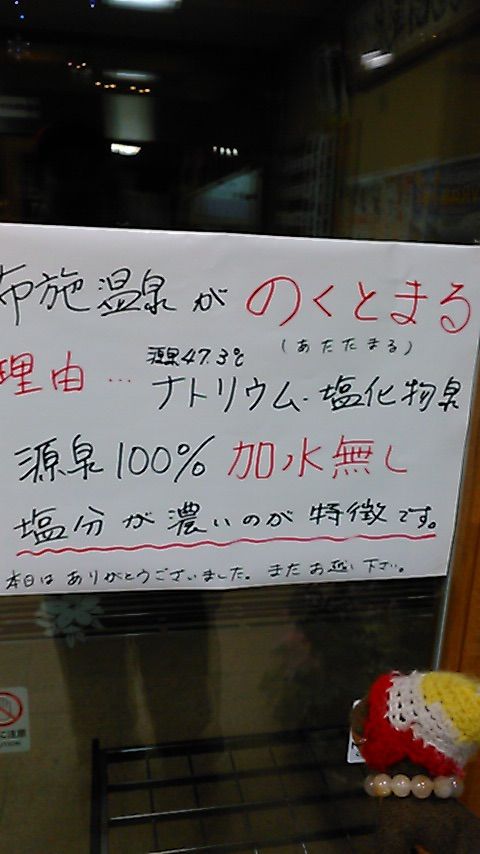 布施温泉が のくとまる
(あたたまる)
理由… 源泉47.3℃
ナトリウム・塩化物泉
源泉100% 加水無し
塩分が濃いのが特徴です。
本日はありがとうございました。またお越し下さい。
に注意
CAUTION